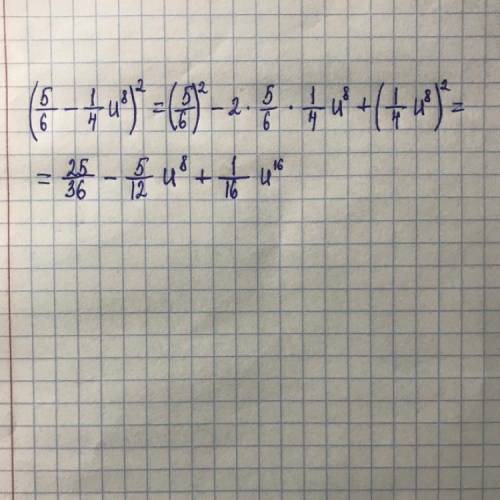 (5/6 − 1/4 u⁸)² = (5/6)² − 2 · 5/6 · 1/4 u⁸ + (1/4 u⁸)² =
= 25/36 − 5/12 u⁸ + 1/16 u¹⁶